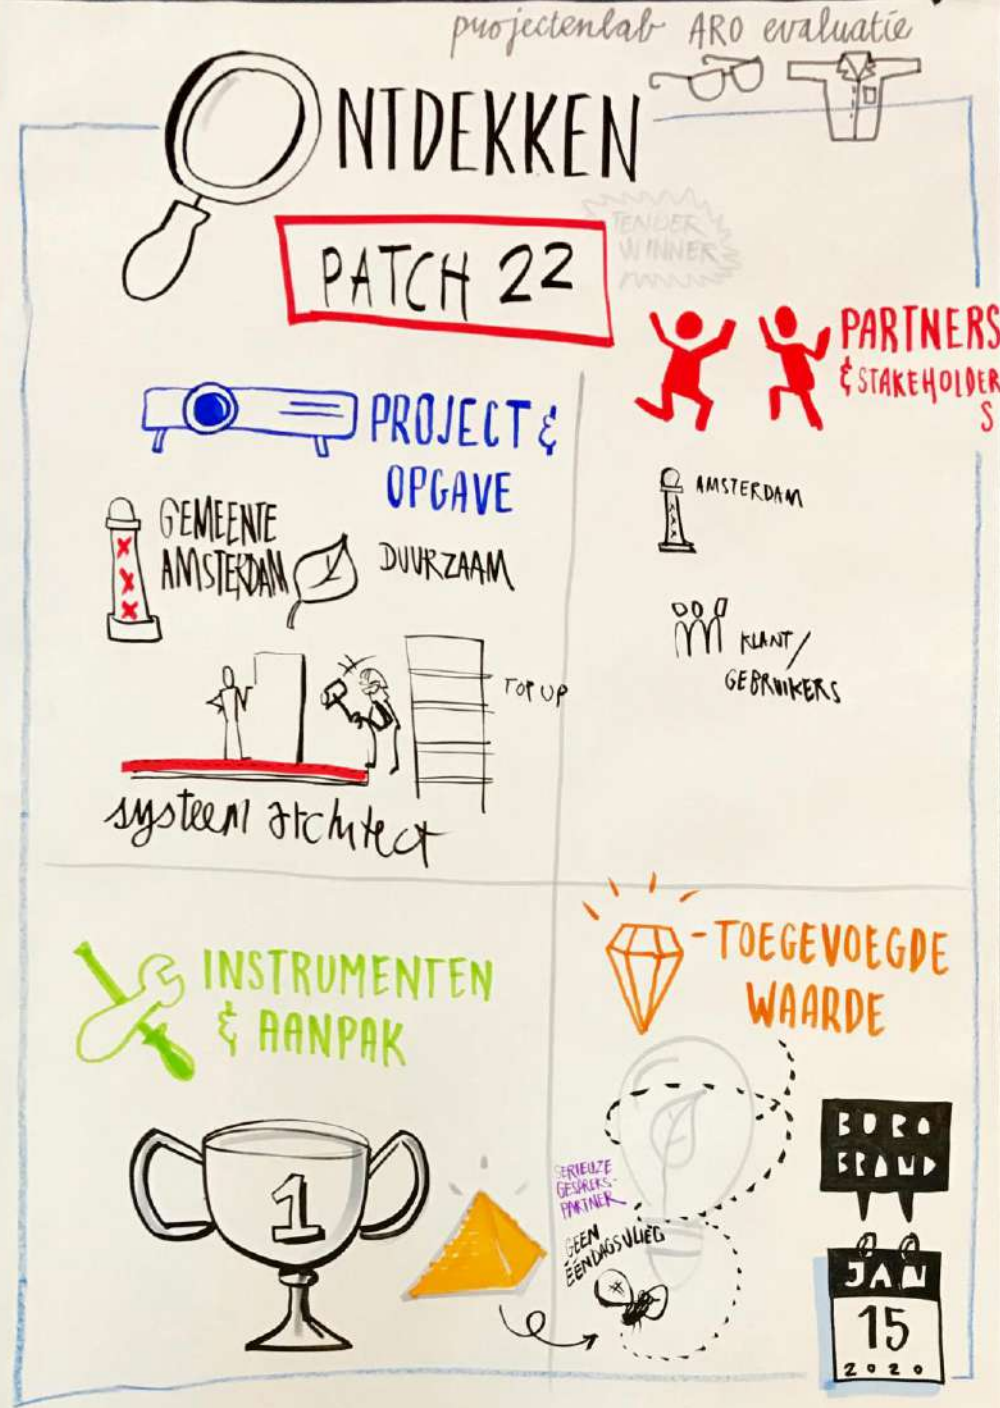 projectenlab ARO evaluatie
ONTDEKKEN
TENDER
WINNER
PATCH 22
PARTNERS
& STAKEHOLDER
S
PROJECT &
OPGAVE
GEMEENTE
AMSTERDAM
XXX
DUURZAAM
TOP UP
systeem architect
AMSTERDAM
XXX
KLANT/
GEBRUIKERS
INSTRUMENTEN
& AANPAK
1
-TOEGEVOEGDE
WAARDE
SERIEUZE
GESPREKS-
PARTNER
GEEN
ÉÉNDAGSVLIEG
BURO
BRAND
JAN
15
2020